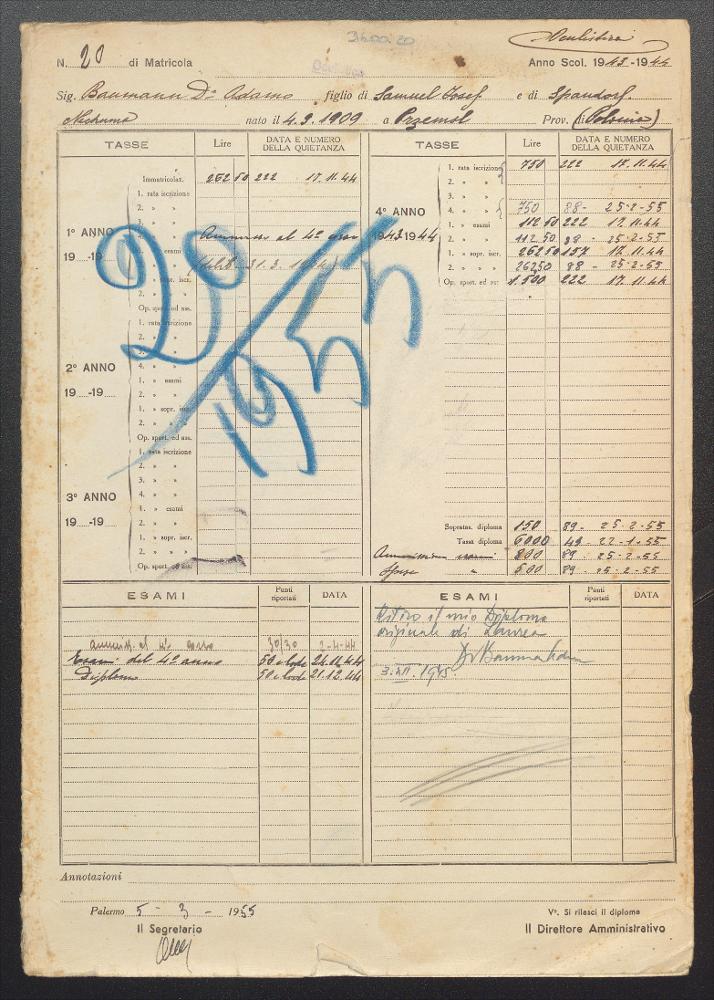 3600.20
Oculistica
N. 20 di Matricola
Anno Scol. 1943-1944
Sig. Baumann Dr Adamo figlio di Samuel Josef e di Spandorf
Nechuma nato il 4.9.1909 a Przemsl Prov. di (Polonia)
TASSE Lire DATA E NUMERO DELLA QUIETANZA TASSE Lire DATA E NUMERO DELLA QUIETANZA
Immatricolaz. 262 50 222 17.11.44
1. rata iscrizione
2. » »
3. » »
4. » »
1° ANNO
19 -19
1. » esami
2. » »
1. » sopr. iscr.
2. » »
Op. sport. ed ass.
Ammesso al 4° corso
20/1955
1. rata iscrizione
2. » »
3. » »
4. » »
2° ANNO
19 -19
1. » esami
2. » »
1. » sopr. iscr.
2. » »
Op. sport. ed ass.
1. rata iscrizione
2. » »
3. » »
4. » »
3° ANNO
19 -19
1. » esami
2. » »
1. » sopr. iscr.
2. » »
Op. sport. ed ass.
1. rata iscrizione 750 222 17.11.44
2. » »
3. » »
4. » » 750 88 - 25-2-55
4° ANNO
1943-1944
1. » esami 112 50 222 17.11.44
2. » » 112 50 88 - 25-2-55
1. » sopr. iscr. 262 50 157 17.11.44
2. » » 262 50 88 - 25-2-55
Op. sport. ed ass. 1.500 222 17.11.44
Soprattas. diploma 150 89 - 25-2-55
Tassa diploma 6000 49 - 22-1-55
800 89 - 25-2-55
Spese » 600 89 - 25-2-55
ESAMI Punti riportati DATA ESAMI Punti riportati DATA
ammiss. al 4° corso 30/30 2-4-44
Esami del 4° anno 50 e lode 21.12.44
Diploma 50 e lode 21.12.44
Ritiro il mio Diploma
originale di Laurea
3.XII.1955
Annotazioni
Palermo 5 - 3 - 1955
Il Segretario
V°. Si rilasci il diploma
Il Direttore Amministrativo